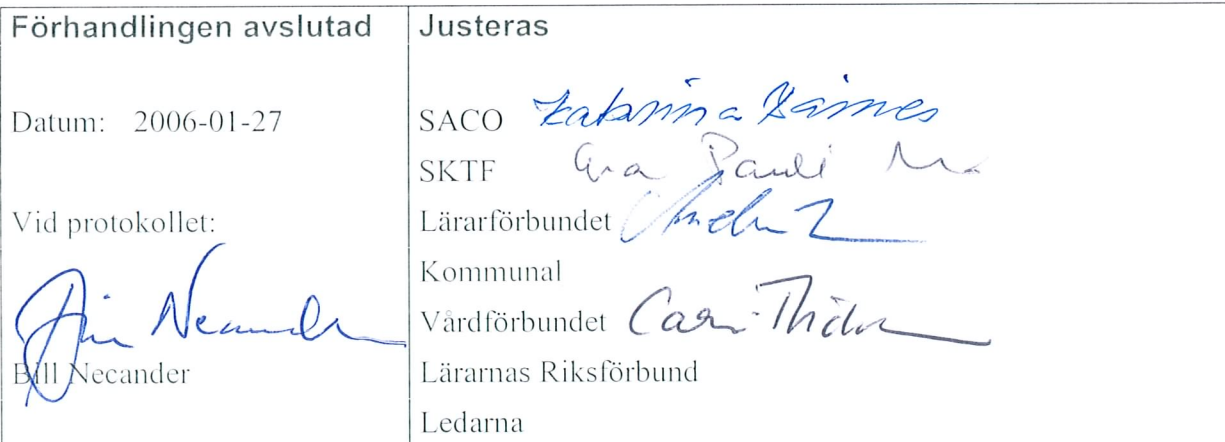 Förhandlingen avslutad
Datum: 2006-01-27
Vid protokollet:
Bill Necander
Bill Necander
Justeras
SACO Katarina
SKTF
Lärarförbundet
Kommunal
Vårdförbundet
Lärarnas Riksförbund
Ledarna